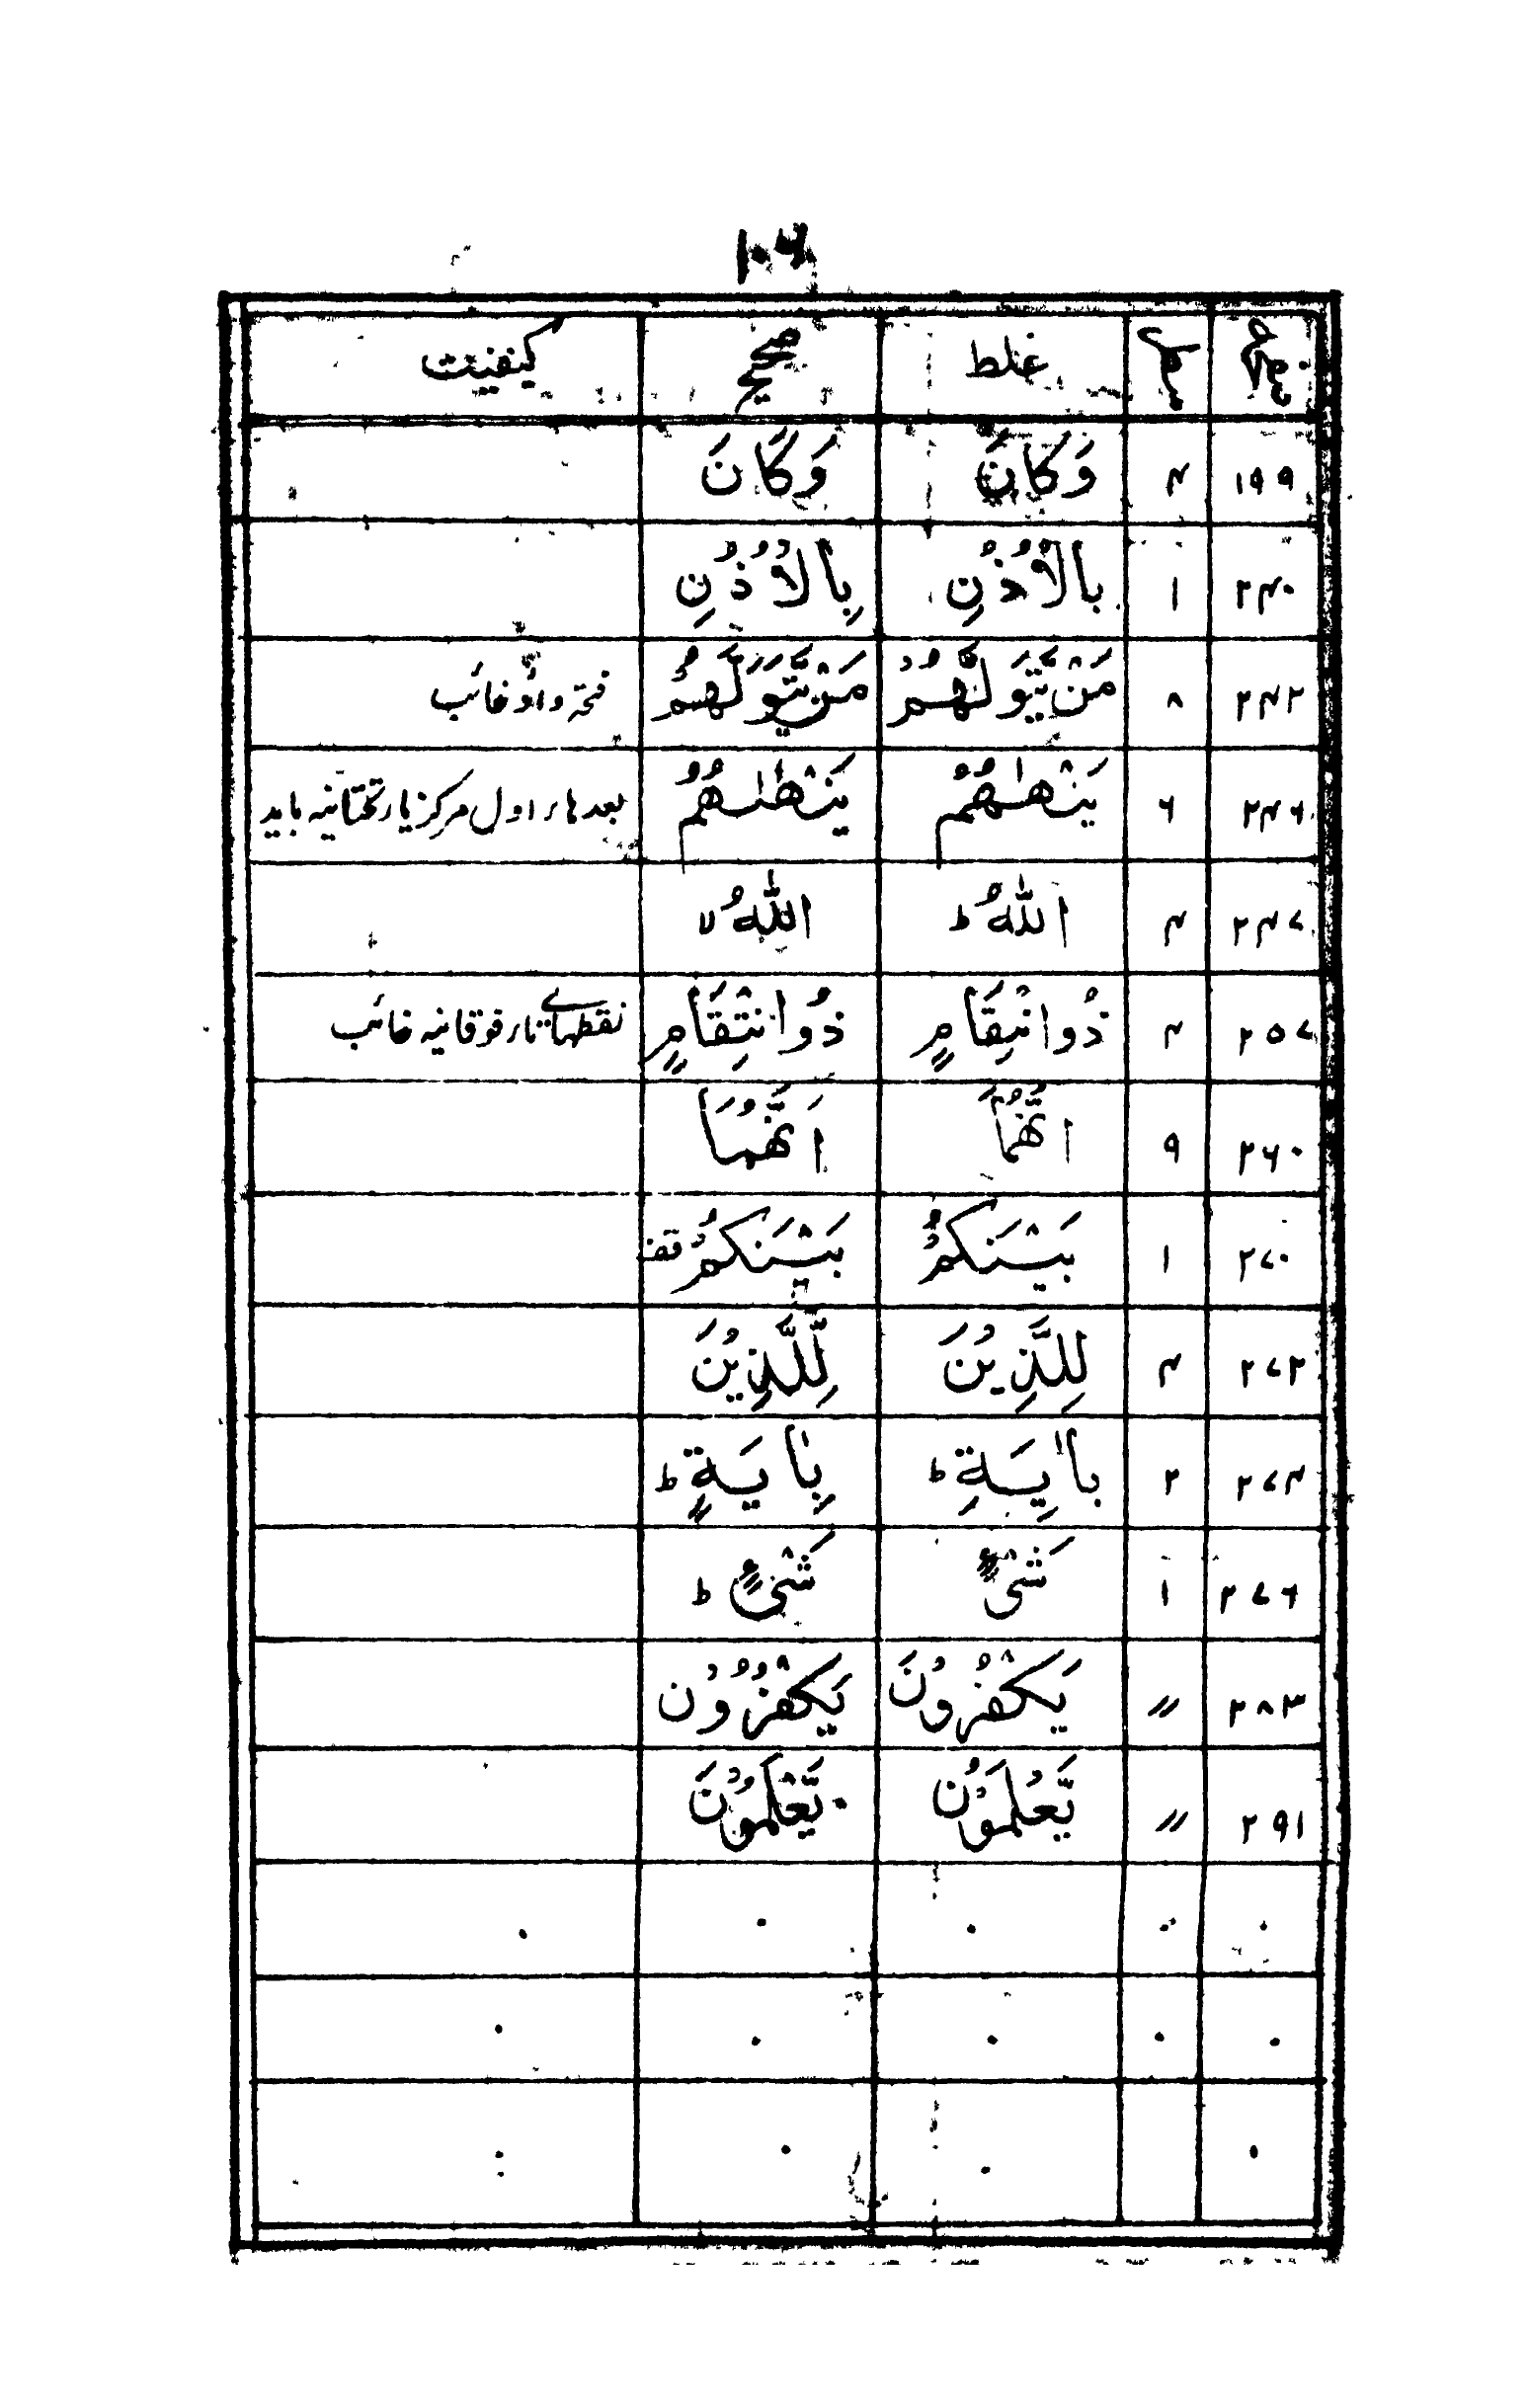 ۱۰۶
صفحہ سطر غلط صحیح کیفیت
۱۹۹ ۴ وَكَانَ وَكَانَ
۲۴۰ ۱ بالْاُذُنِ بِالْاُذُنِ
۲۴۲ ۸ مَنْ يَّتَوَلَّهُمْ مَنْ يَّتَوَلَّهُمْ فتحہ واؤ غائب
۲۴۶ ۶ يَنْهٰهُمْ يَنْهٰىهُمُ بعد ہاء اول مرکز یاء تحتانیہ باید
۲۴۷ ۴ اللّٰهُ ط اللّٰهُ لا
۲۵۷ ۴ ذُوا نْتِقَامٍ ذُوا نْتِقَامٍ نقطہائے تاء فوقانیہ غائب
۲۶۰ ۹ اِنَّهُمَا اَنَّهُمَا
۲۷۰ ۱ بَيْنَكُمْ بَيْنَكُمْ قف
۲۷۲ ۴ لِلَّذِيْنَ لِّلَّذِيْنَ
۲۷۴ ۲ بااٰيَةِ ط بِاٰيَةٍ ط
۲۷۶ ۱ شَیْءٍ شَیْءٍ ط
۲۸۳ // يَكْفُرُوْنَ يَكْفُرُوْنَ
۲۹۱ // يَّعْلَمُوْنَ يَّعْلَمُوْنَ